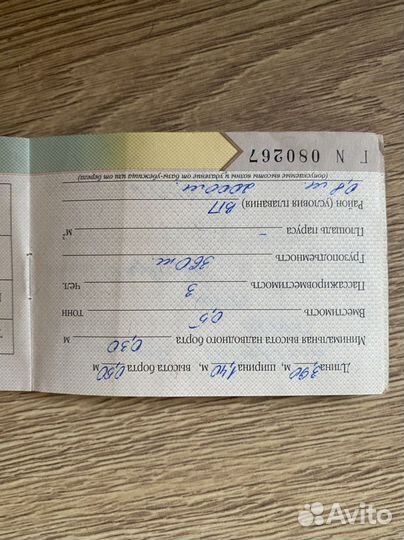 Длина 3,90 м, ширина 1,40 м, высота борта 0,50 м
Минимальная высота надводного борта 0,30 м
Вместимость 0,5 тонн
Пассажировместимость 3 чел.
Грузоподъемность 360 кг.
Площадь паруса – м²
Район (условия плавания) ВП
0,8 м. 2000 м.
(допускаемые высоты волны и удаление от базы-убежища или от берега)
Г N 080267
Avito